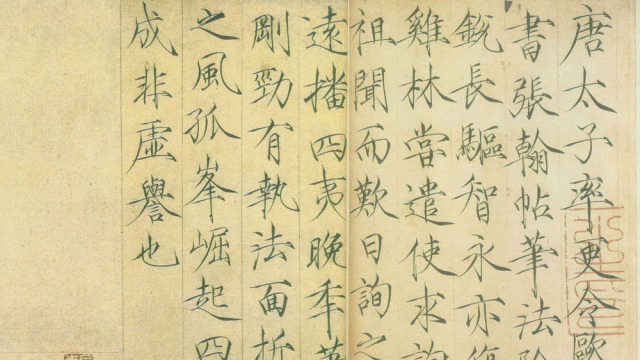 唐太子率更令歐
書張翰帖筆法險
銳長驅智永亦復
雞林嘗遣使求詢
祖聞而歎曰詢之
遠播四夷晚年筆
剛勁有執法面折
之風孤峯崛起四
成非虛譽也